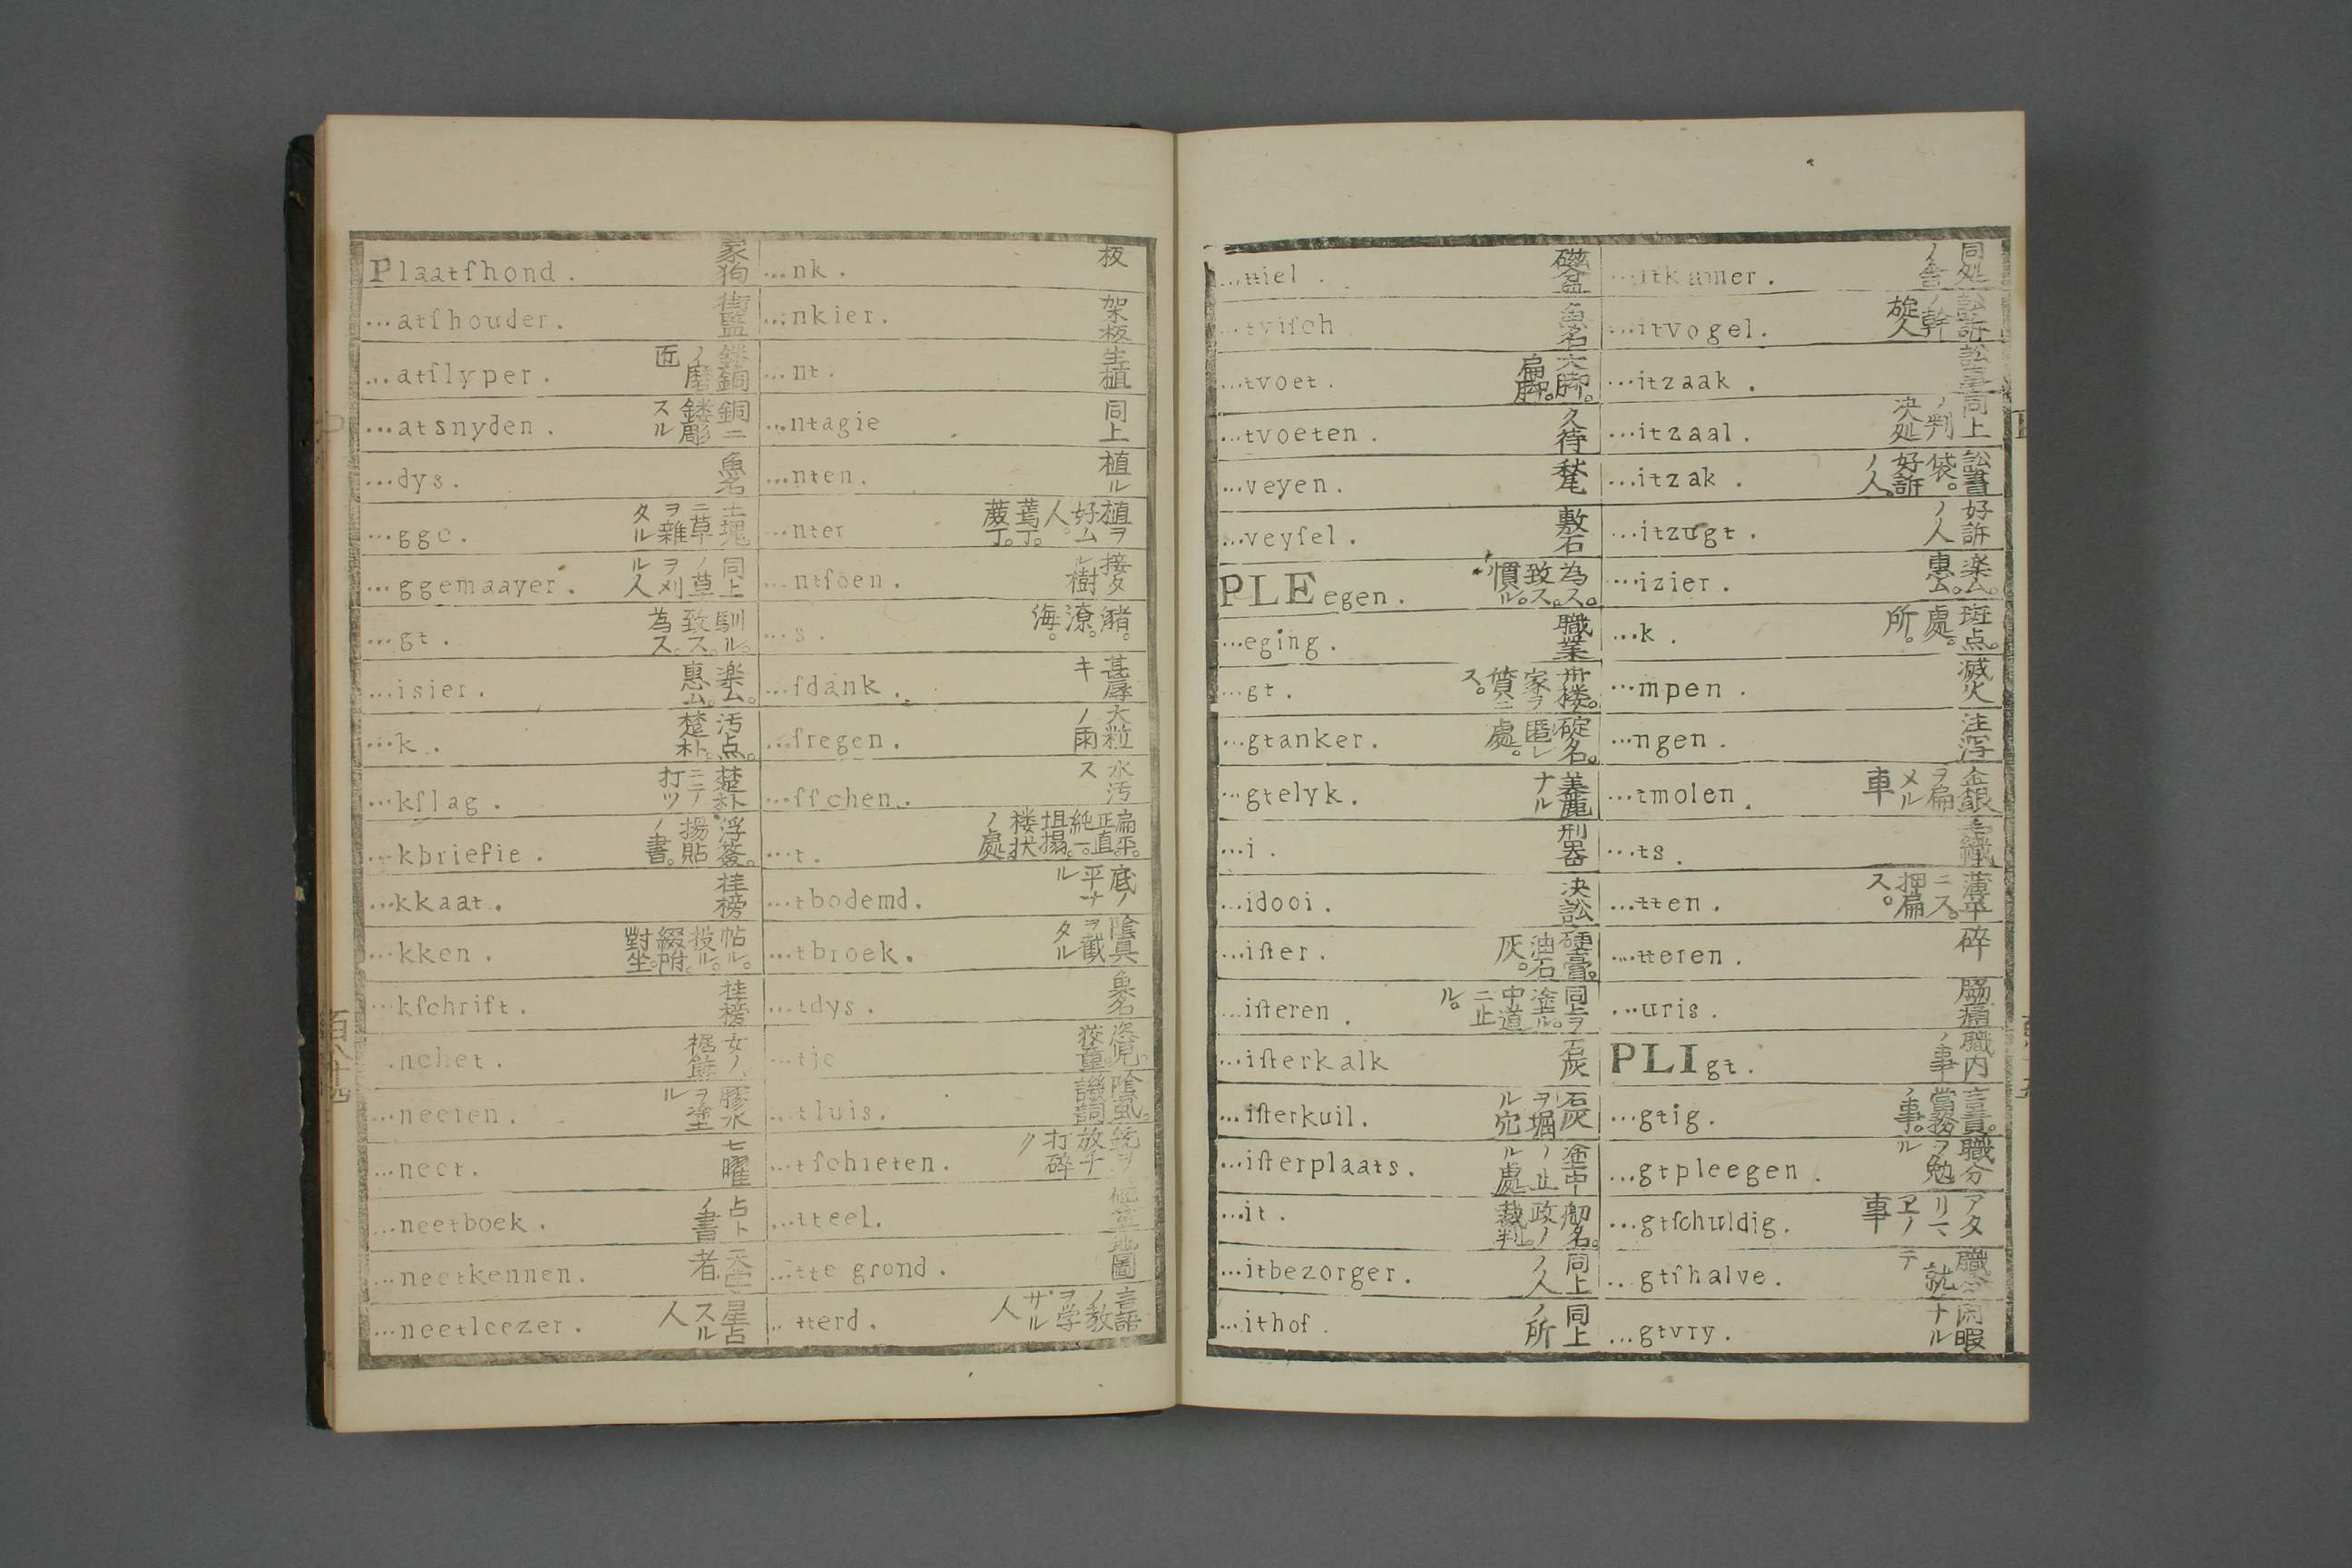 Plaatſhond. 家狗
...atſhouder. 街監
...atſlyper. 鏤銅ノ磨匠
...atsnyden. 銅ニ鏤彫スル
...dys. 魚名
...gge. 土塊ニ草ヲ雜タル
...ggemaayer. 同上ノ草ヲ刈ル人
...gt. 馴ル。致ス。為ス
...isier. 楽ム。惠ム。
...k. 汚点。楚朴。
...kſlag. 楚朴ニテ打ツ
...kbriefie. 浮簽。揚貼ノ書。
...kkaat. 桂榜
...kken. 帖ル。投ル。綴附。對坐。
...kſchrift. 挂榜
.nchet. 女ノ裾飾
...neeren. 膠水ヲ塗ル
...neet. 七曜
...neetboek. 占卜ノ書
...neetkennen. 天文者
...neetleezer. 星占スル人
...nk. 板
...nkier. 架板
...nt. 生植
...ntagie 同上
...nten. 植ル
...nter 植ヲ好ム人。蔫丁。蔆丁。
...ntſoen. 接タル樹
...s. 潴。潦。海。
...ſdank. 甚辱キ
...ſregen. 大粒ノ雨
...ſſchen. 水汚ス
...t. 扁平。正直。純一。坦搨。楼状ノ處。
...tbodemd. 底ノ平ナル
...tbroek. 陰具ヲ截タル
...tdys. 魚名
...tje 恣児。狡童。
...tluis. 陰虱。譏詞
...tſchieten. 銃ヲ放チ打碎ク
...tteel. 磁盆
...tte grond. 地圖
...tterd. 言語ノ教ヲ学ザル人
...ttiel. 磁盆
...tviſch 魚名
...tvoet. 大脚。扁脚。
...tvoeten. 久待
...veyen. 
...veyſel. 敷石
PLEegen. 為ス。致ス。慣ル。
...eging. 職業
...gt. 家ヲ債ニス。
...gtanker. 碇名。匿レ處。
...gtelyk. 美麗ナル
...i. 刑器
...idooi. 決訟
...iſter. 硬膏。油石灰。
...iſteren. 同上ヲ塗ル。中道ニ止ル。
...iſterkalk 石灰
...iſterkuil. 石灰ヲ堀ル穴
...iſterplaats. 途中ノ止ル處
...it. 舩名。政ノ裁判。
...itbezorger. 同上ノ人
...ithof. 同上ノ所
...itkamer. 同処ノ舎
...itvogel. 訟訴ノ幹旋人
...itzaak. 訟事
...itzaal. 同上ノ判決処
...itzak. 訟書袋。好訴ノ人。
...itzugt. 好訴ノ人
...izier. 楽ム。惠ム。
...k. 斑点。處。所。
...mpen. 滅火
...ngen. 注瀉
...tmolen. 金銀ヲ扁メル車
...ts. 
...tten. 薄平ニス。押扁ス。
...tteren. 碎
...uris. 脇痛
PLIgt. 職内ノ事
...gtig. 言責。當務ノ事。
...gtpleegen. 職分ヲ勉ル
...gtſchuldig. アタリマヱノ事
...gtſhalve. 職分就テ
...gtvry. 閑暇ナル